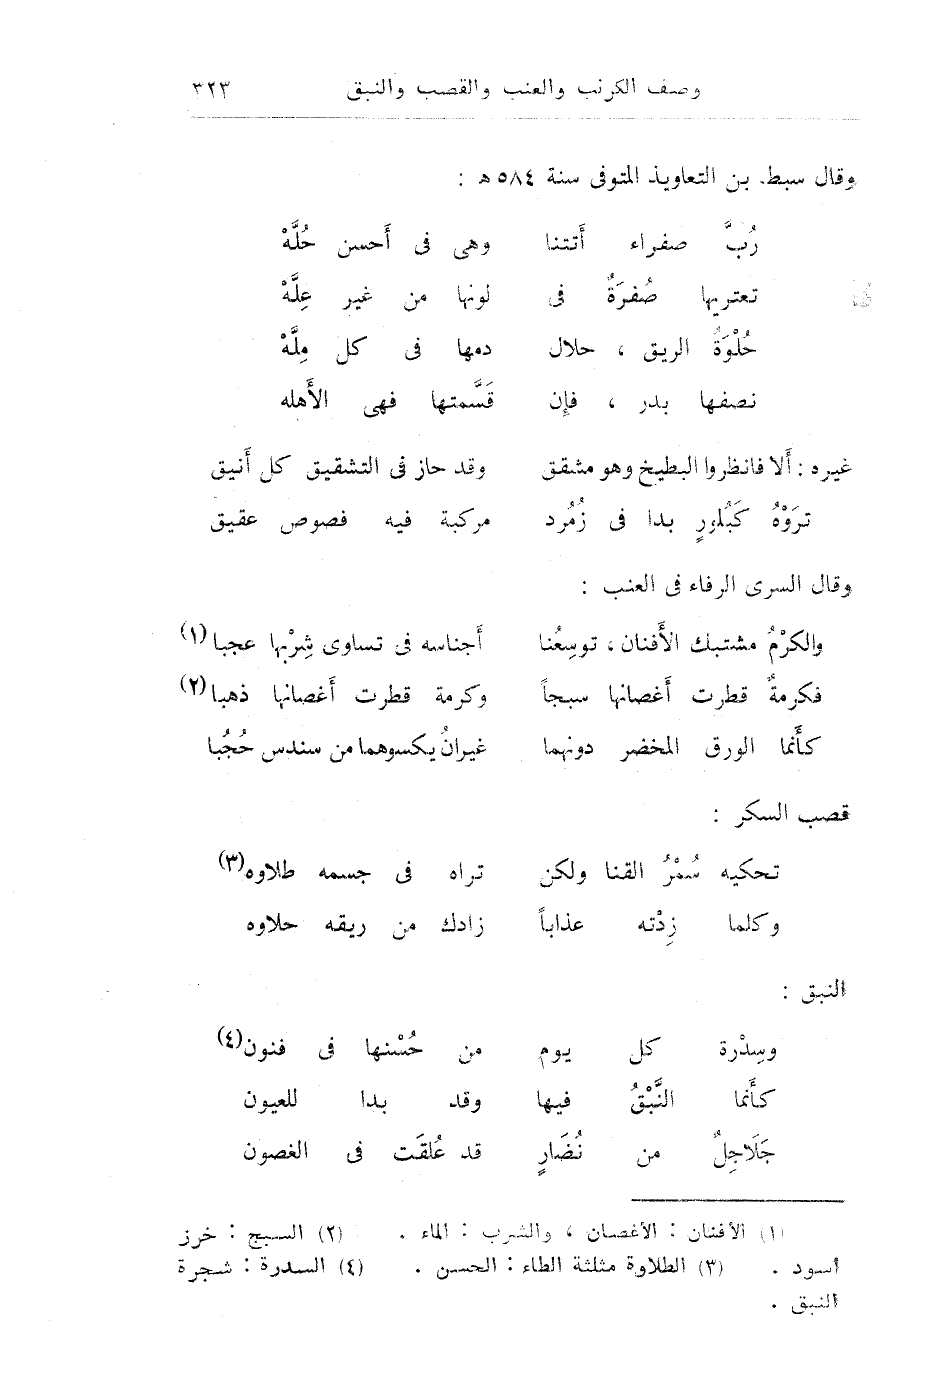 وصف الكرنب والعنب والقصب والنبق ٣٢٣
وقال سبط. بن التعاويذ المتوفى سنة ٥٨٤ ه :
رُبَّ صفراء أَتتنا وهى فى أَحسن حُلَّهْ
تعتريها صُفرَةٌ فى لونها من غير عِلَّهْ
حُلْوَةُ الريق ، حلال دمها فى كل مِلَّهْ
نصفها بدر ، فإِن قَسَّمتها فهى الأَهله
غيره : أَلا فانظروا البطيخ وهو مشقق وقد حاز فى التشقيق كل أَنيق
ترَوْهُ كَبُلورٍ بدا فى زُمُرد مركبة فيه فصوص عقيق
وقال السرى الرفاء فى العنب :
والكرْمُ مشتبك الأَفنان ، توسِعُنا أَجناسه فى تساوى شِرْبها عجبا (١)
فكرمةٌ قطرت أَغصانها سبجاً وكرمة قطرت أَغصانها ذهبا (٢)
كأَنما الورق المخضر دونهما غيرانُ يكسوهما من سندس حُجُبا
قصب السكر :
تحكيه سُمْرُ القنا ولكن تراه فى جسمه طلاوه (٣)
وكلما زِدْته عذاباً زادك من ريقه حلاوه
النبق :
وسِدْرة كل يوم من حُسْنها فى فنون (٤)
كأَنما النَّبْقُ فيها وقد بدا للعيون
جَلَاجِلٌ من نُضَارٍ قد عُلقَت فى الغصون
(١) الأفنان : الأغصان ، والشرب : الماء . (٢) السبج : خرز
أسود . (٣) الطلاوة مثلثة الطاء : الحسن . (٤) السدرة : شجرة
النبق .